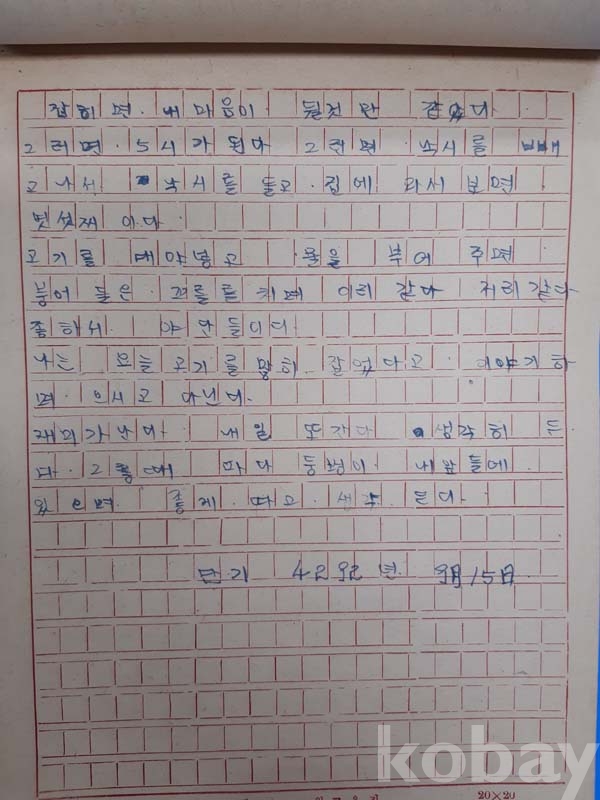 잡히면. 내마음이 될것만 같았다
그러면. 5시가된다 그러면 낙시를 빼
고나서 낙시를 들고. 집에 와서 보면
멋섯째 이다.
고기를 대야넣고 물을 부어 주면
붕어 들은 꼬를를 치며 이리 갔다 저리 갔다
좋하서. 야단들이다
나는 오늘 고기를많히 잡었다고. 이야기하
며. 으시고 다닌다.
재미가난다. 내일 또간다 생각히 든
다. 그럴때 마다 동생이 내앞들에.
있으면. 좋게. 따고. 생각 든다.
단기 4292년. 9月15日.
kobay
20×20